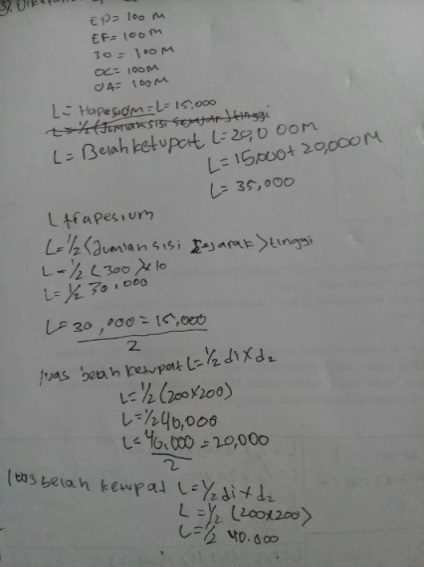 ED = 100 M
EF = 100 M
30 = 100 M
OC = 100 M
OA = 100 M
L = Hapesiom = L = 15.000
L = ½ (Jumlah sisi sejajar) tinggi
L = Belah ketupat L = 20,000 M
L = 15,000 + 20,000 M
L = 35,000
L trapesium
L = ½ (Jumlah sisi sejarak) tinggi
L = ½ (300) x 10
L = ½ 30.000
L = 30,000 = 15.000
2
luas belah ketupat L = ½ di x d₂
L = ½ (200 x 200)
L = ½ 40,000
L = 40.000 = 20,000
2
luas belah ketupat L = ½ di x d₂
L = ½ (200x200)
L = ½ 40.000